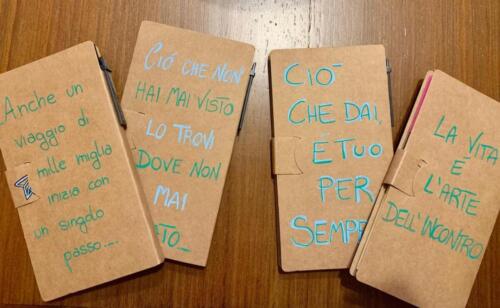 Anche un
viaggio di
mille miglia
inizia con
un singolo
passo....
CIÒ CHE NON
HAI MAI VISTO
LO TROVI
DOVE NON
MAI
ATO...
CIÒ
CHE DAI,
È TUO
PER
SEMPRE
LA VITA
È
L'ARTE
DELL'INCONTRO